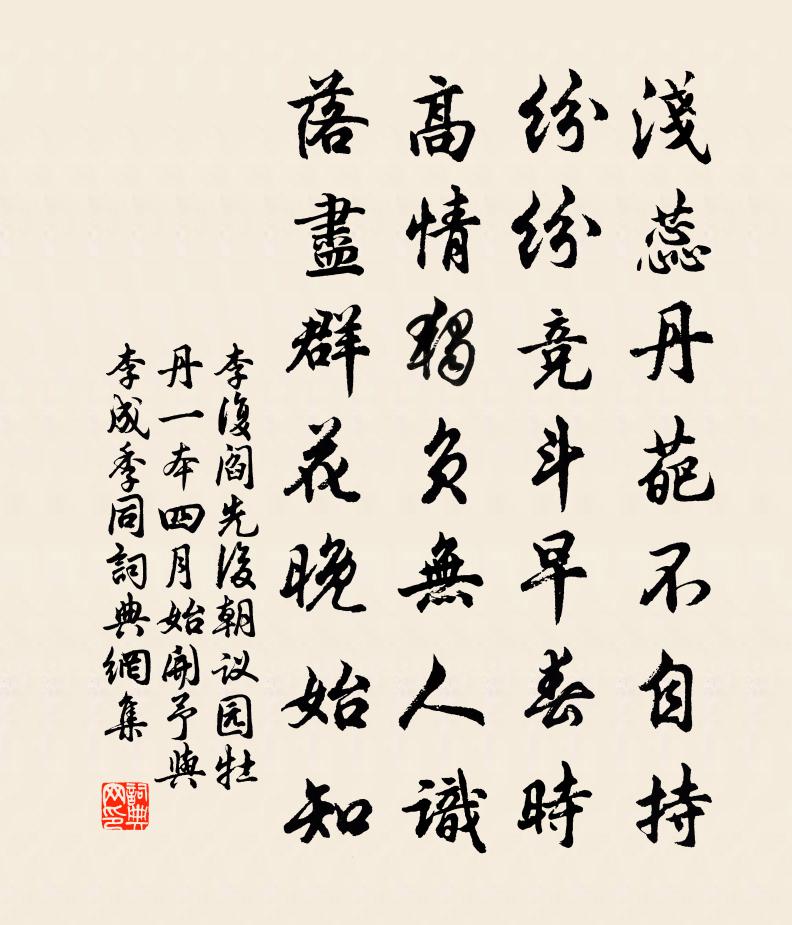 淺蕊丹葩不自持
紛紛竞斗早春時
高情獨負無人識
落盡群花晚始知
李復閻先後朝议园牡
丹一本四月始開予與
李成季同詞典網集
詞典网印